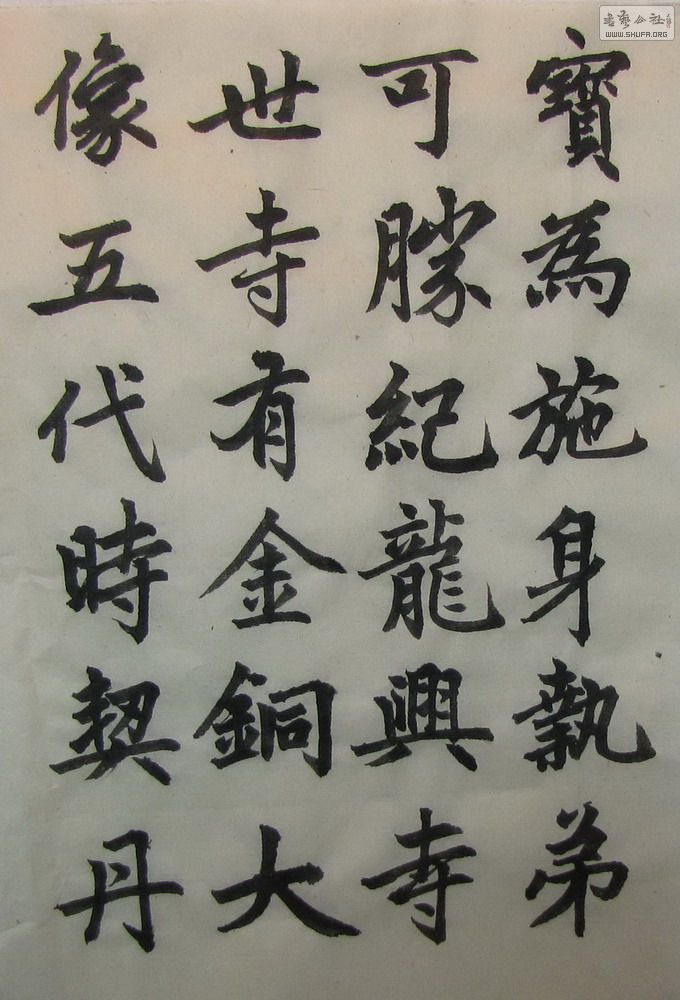 寶為施身執弟
可勝紀龍興寺
世寺有金銅大
像五代時契丹
書藝公社
WWW.SHUFA.ORG